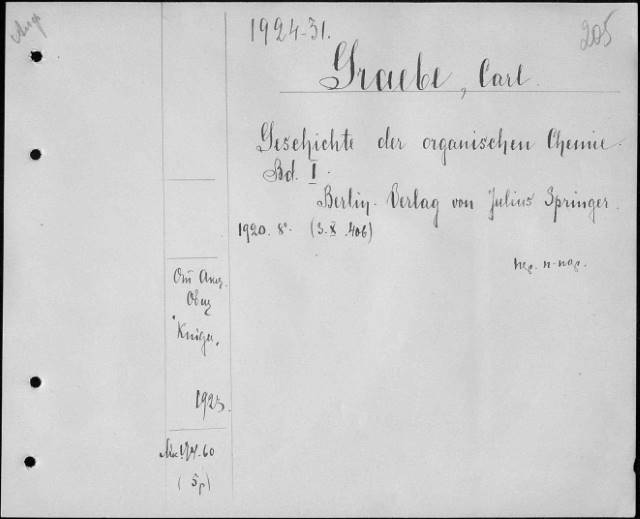 1924-31.
205
Graebe, Carl.
Geschichte der organischen Chemie.
Bd. I.
Berlin. Verlag von Julius Springer.
1920. 8°. (3.X.406)
От Акц.
Общ.
"Книга"
1925.
(5р)